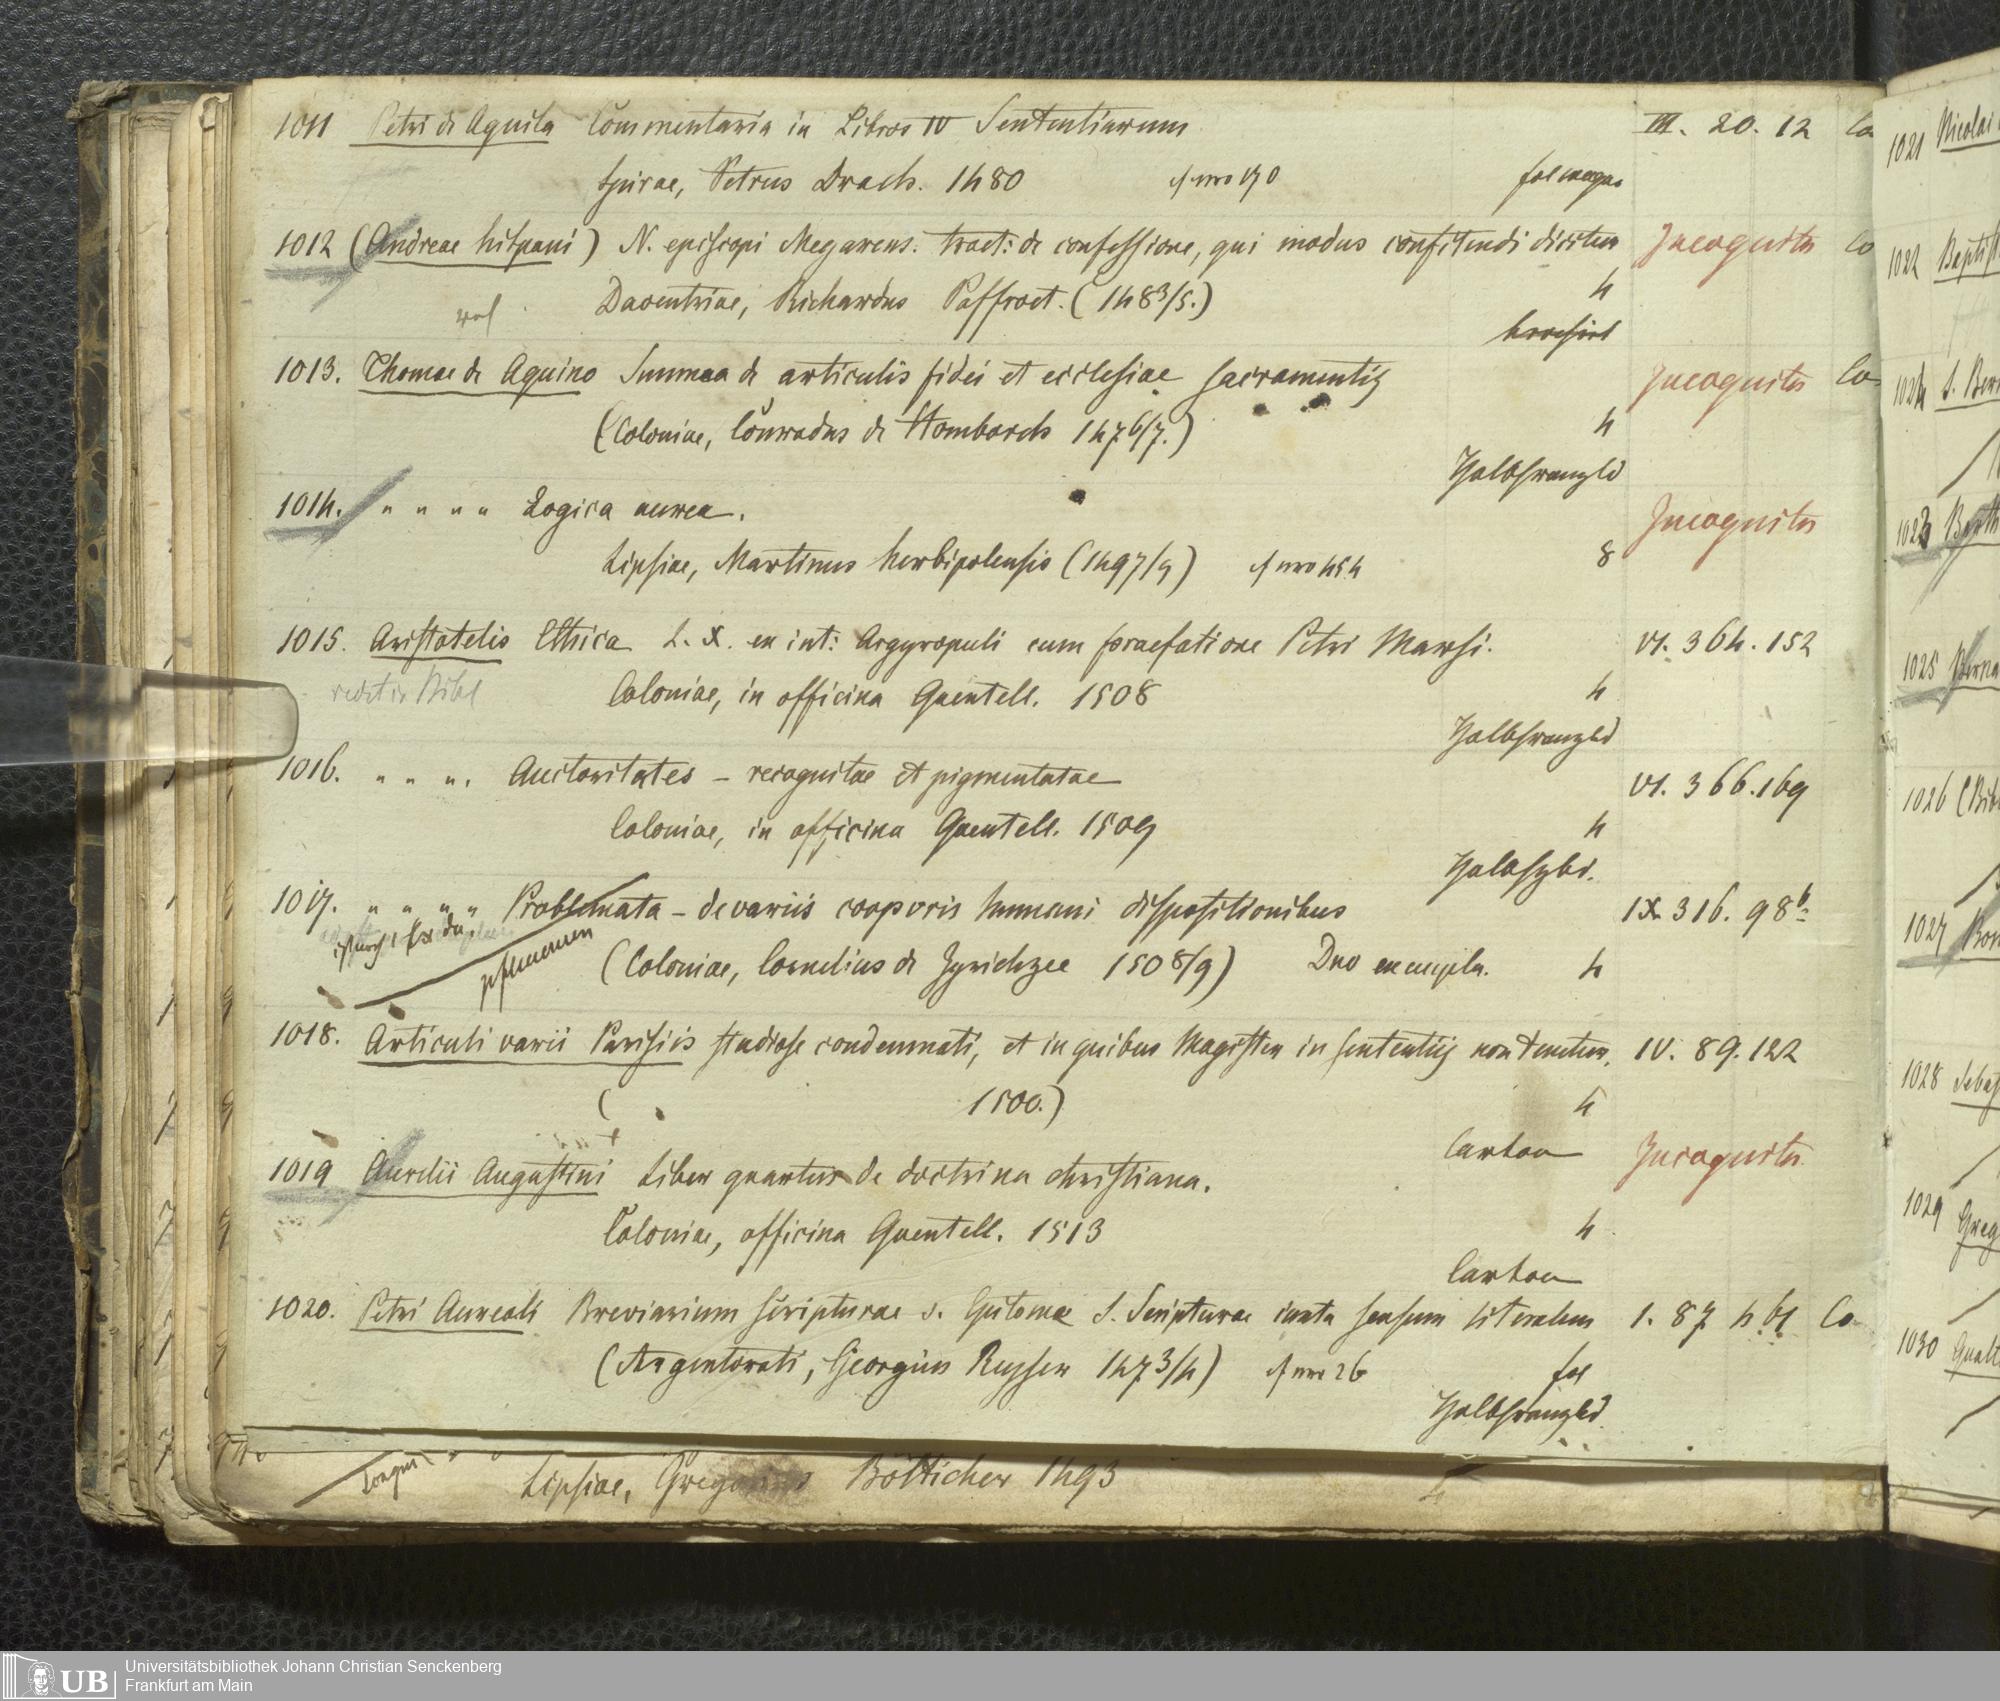 1011 Petri de Aquila Commentaria in Libros IV Sententiarum III. 20. 12 Co
Spirae, Petrus Drach. 1480 cf nro 170 fol magn
1012 (Andreae hispani) N. episcopi Megarens. tract: de confessione, qui modus confitendi dicitur Incognitus Co
Daventriae, Richardus Paffroet. (1483/5.) 4
broschirt
1013. Thomae de Aquino Summa de articulis fidei et ecclesiae sacramentis Incognitus Co
(Coloniae, Conradus de Homborch 1476/7.) 4
Halbfranzbd
1014. " " " " Logica aurea. Incognitus
Lipsiae, Martinus herbipolensis (1497/9) cf nro 454 8
1015. Aristotelis Ethica L. X. ex int: Argyropuli cum praefatione Petri Marsi. VI. 364. 152
Coloniae, in officina Quentell. 1508 4
Halbfranzbd
1016. " " " . Auctoritates – recognitae et pigmentatae VI. 366. 169
Coloniae, in officina Quentell. 1509 4
Halbfzbd.
1017. " " " " Problemata – de variis coorporis humani dispositionibus IX 316. 98b
(Coloniae, Cornelius de Zyrichzee 1508/9) Duo exempla. 4
1018. Articuli varii Parisiis studiose condemnati, et in quibus Magister in sententiis non tenetur. IV. 89. 122
( 1500.) 4
Carton
1019 Aurelii Augustini Liber quartus de doctrina christiana. Incognitus
Coloniae, officina Quentell. 1513 4
Carton
1020. Petri Aureoli Breviarium scripturae s. Epitoma S. Scripturae iuxta sensum literalem 1. 87 4 b1 Co
(Argentorati, Georgius Reyser 1473/4) cf nro 26 fol
Halbfranzbd
Lipsiae, Gregorius Bötticher 1493
1021 Nicolai
1022 Baptist
1024 S. Bern
1023 Barth
1025 Berna
1026 (Bibl
1027 Bon
1028 Sebas
1029 Greg
1030 Gualt
UB
Universitätsbibliothek Johann Christian Senckenberg
Frankfurt am Main